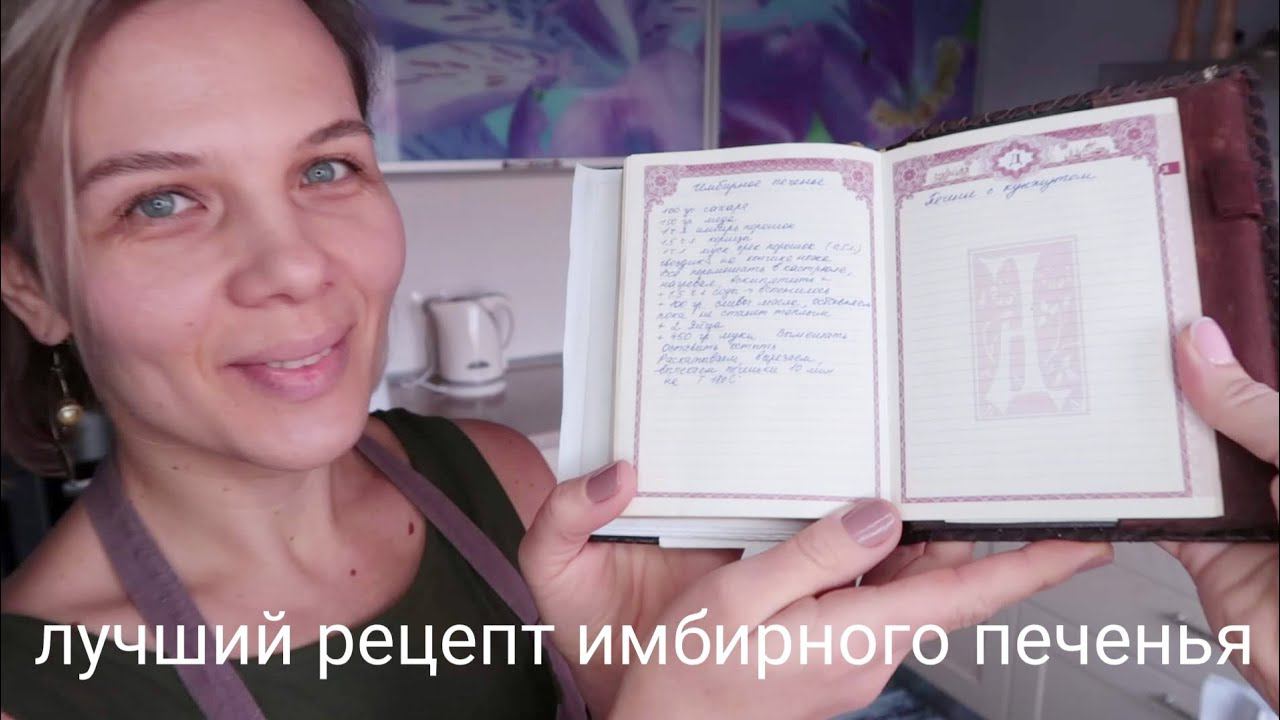 Имбирное печенье
100 гр сахара
150 гр меда
1 ч.л имбирь порошок
1.5 ч.л корица
1 ч.л муск орех порошок (0.5л)
гвоздика на кончике ножа
Все перемешать в кастрюле,
нагреваем, вскипятить
+ 1.5 ч.л сода → вспенилось
+ 100 гр сливоч масло,
пока не станет теплым
+ 2 яйца
+ 450 гр муки Вымешать
Оставить остыть
Раскатываем, вырезаем,
выпекаем печеньки 10 мин
на T 180°C
Д
Печенье с кунжутом
лучший рецепт имбирного печенья